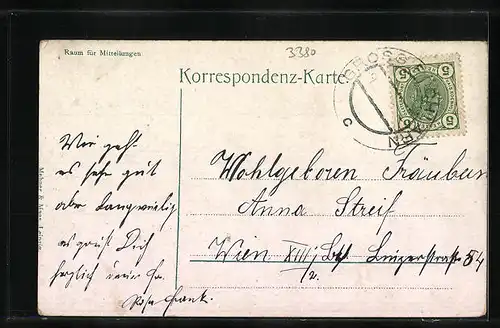 Raum für Mitteilungen
3380
GROSS
Korrespondenz-Karte
5 5
C
Wir geht
es sehr gut
aber langweilig
es grüßt Dich
herzlich deine
Rosa Frank.
Wohlgeboren Fräulein
Anna Streif
Wien XIII/ Linzerstraße 54